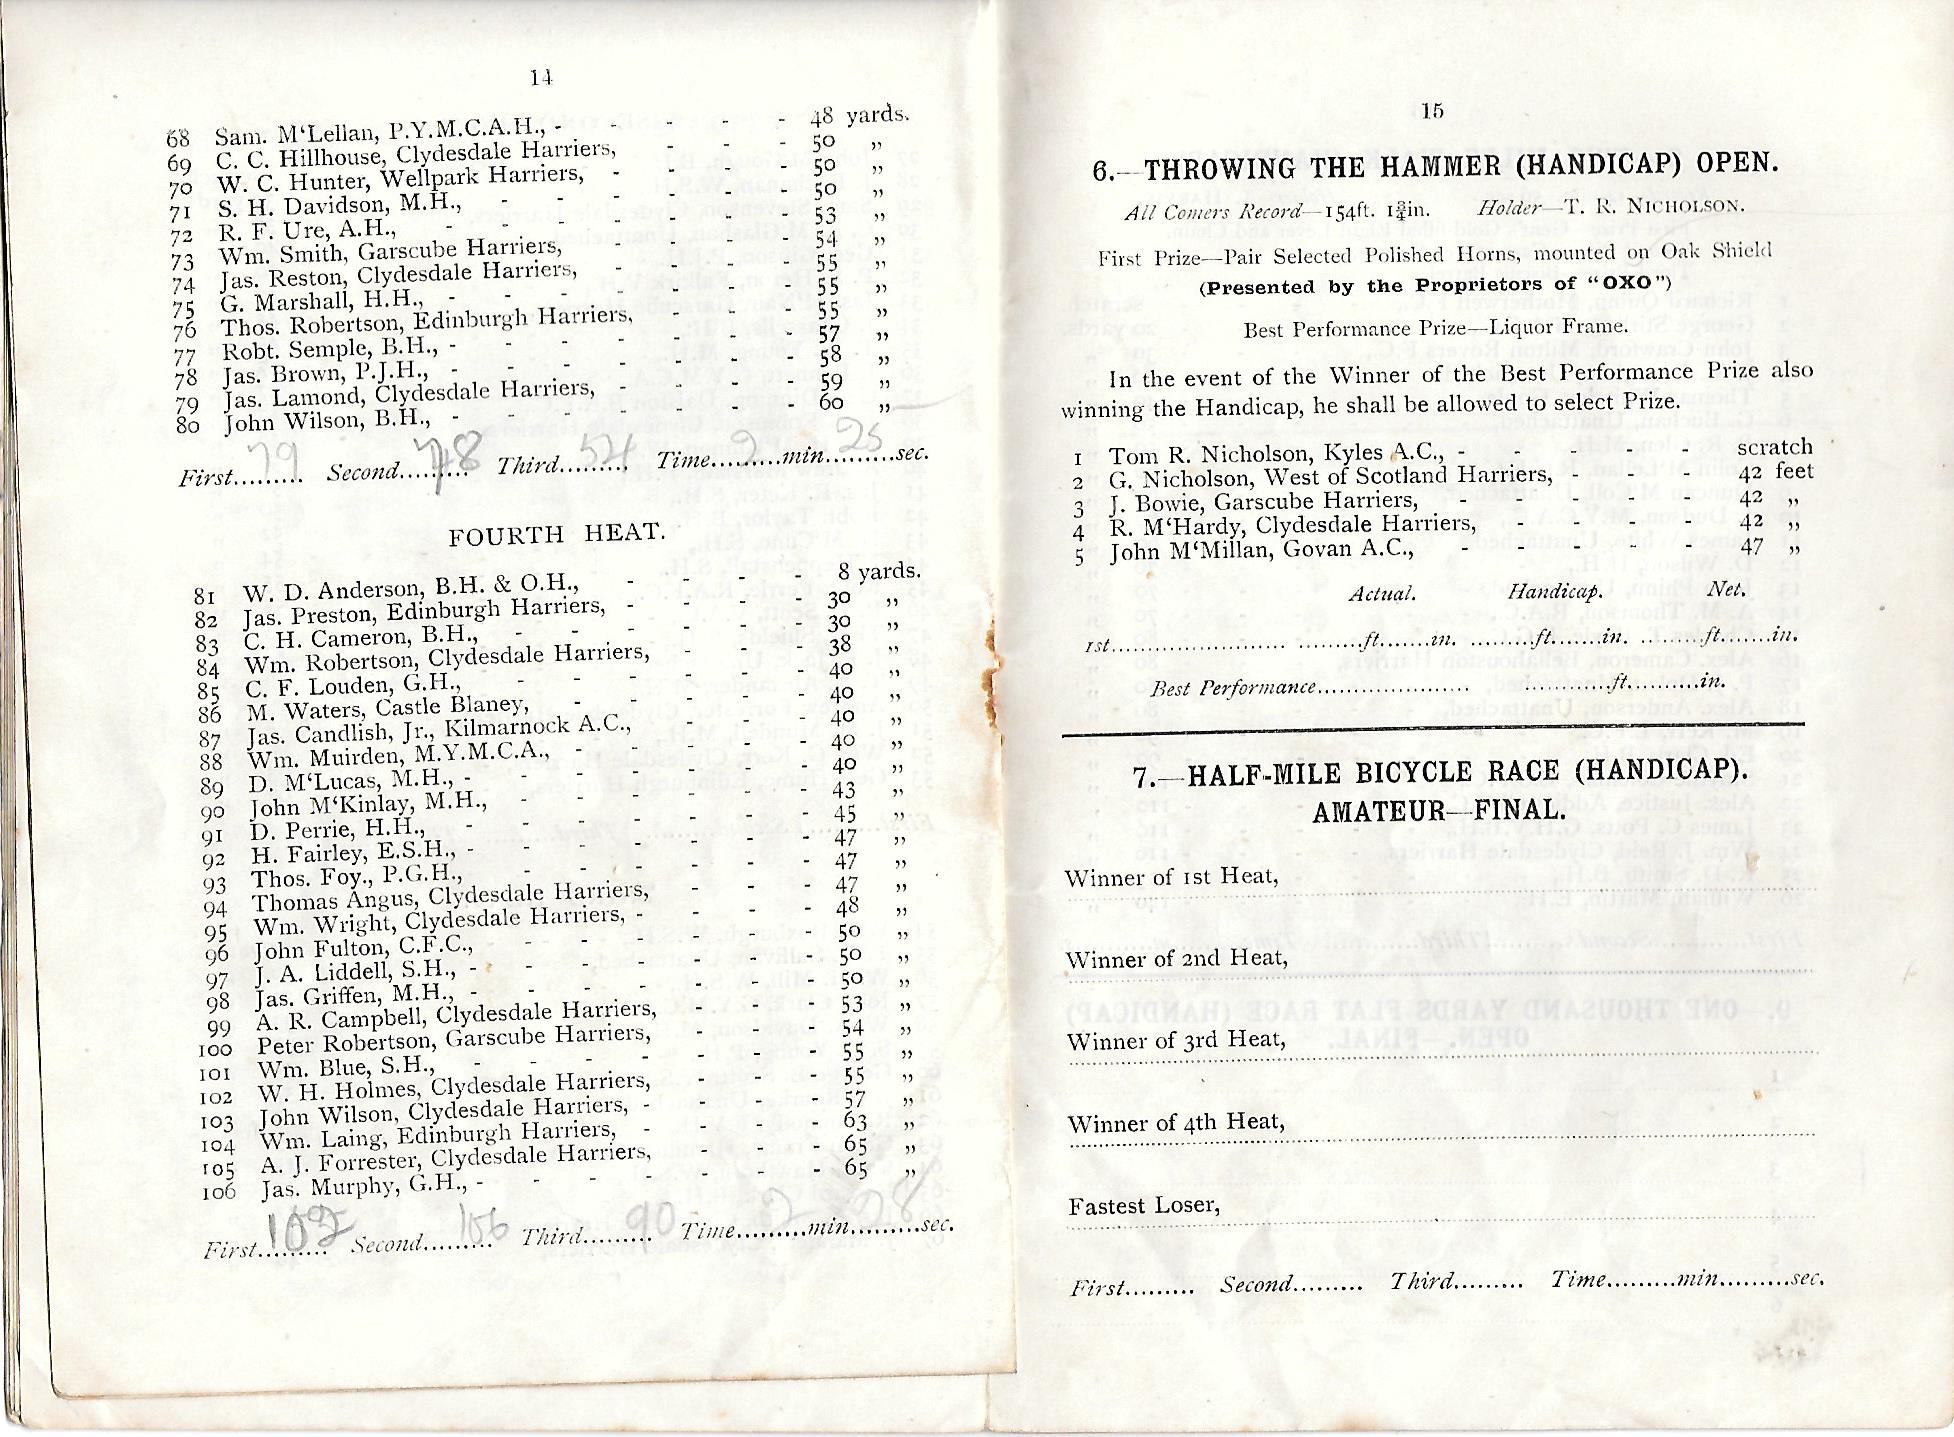 14
68 Sam. M‘Lellan, P.Y.M.C.A.H., - - - - - 48 yards.
69 C. C. Hillhouse, Clydesdale Harriers, - - - 50 „
70 W. C. Hunter, Wellpark Harriers, - - - - 50 „
71 S. H. Davidson, M.H., - - - - - - 50 „
72 R. F. Ure, A.H., - - - - - - 53 „
73 Wm. Smith, Garscube Harriers, - - - - 54 „
74 Jas. Reston, Clydesdale Harriers, - - - - 55 „
75 G. Marshall, H.H., - - - - - - 55 „
76 Thos. Robertson, Edinburgh Harriers, - - - 55 „
77 Robt. Semple, B.H., - - - - - - 57 „
78 Jas. Brown, P.J.H., - - - - - - 58 „
79 Jas. Lamond, Clydesdale Harriers, - - - - 59 „
80 John Wilson, B.H., - - - - - - 60 „
First...79... Second...78... Third...54... Time...2...min...25...sec.
FOURTH HEAT.
81 W. D. Anderson, B.H. & O.H., - - - - 8 yards.
82 Jas. Preston, Edinburgh Harriers, - - - - 30 „
83 C. H. Cameron, B.H., - - - - - - 30 „
84 Wm. Robertson, Clydesdale Harriers, - - - 38 „
85 C. F. Louden, G.H., - - - - - - 40 „
86 M. Waters, Castle Blaney, - - - - - 40 „
87 Jas. Candlish, Jr., Kilmarnock A.C., - - - 40 „
88 Wm. Muirden, M.Y.M.C.A., - - - - - 40 „
89 D. M‘Lucas, M.H., - - - - - - 40 „
90 John M‘Kinlay, M.H., - - - - - - 43 „
91 D. Perrie, H.H., - - - - - - 45 „
92 H. Fairley, E.S.H., - - - - - - 47 „
93 Thos. Foy., P.G.H., - - - - - - 47 „
94 Thomas Angus, Clydesdale Harriers, - - - 47 „
95 Wm. Wright, Clydesdale Harriers, - - - - 48 „
96 John Fulton, C.F.C., - - - - - - 50 „
97 J. A. Liddell, S.H., - - - - - - 50 „
98 Jas. Griffen, M.H., - - - - - - 50 „
99 A. R. Campbell, Clydesdale Harriers, - - - 53 „
100 Peter Robertson, Garscube Harriers, - - - 54 „
101 Wm. Blue, S.H., - - - - - - 55 „
102 W. H. Holmes, Clydesdale Harriers, - - - 55 „
103 John Wilson, Clydesdale Harriers, - - - - 57 „
104 Wm. Laing, Edinburgh Harriers, - - - - 63 „
105 A. J. Forrester, Clydesdale Harriers, - - - 65 „
106 Jas. Murphy, G.H., - - - - - - 65 „
First...102... Second...106... Third...90... Time...2...min...28...sec.
15
6.—THROWING THE HAMMER (HANDICAP) OPEN.
All Comers Record—154ft. 1¾in. Holder—T. R. NICHOLSON.
First Prize—Pair Selected Polished Horns, mounted on Oak Shield
(Presented by the Proprietors of “OXO”)
Best Performance Prize—Liquor Frame.
In the event of the Winner of the Best Performance Prize also
winning the Handicap, he shall be allowed to select Prize.
1 Tom R. Nicholson, Kyles A.C., - - - - - scratch
2 G. Nicholson, West of Scotland Harriers, - - - 42 feet
3 J. Bowie, Garscube Harriers, - - - - - 42 „
4 R. M‘Hardy, Clydesdale Harriers, - - - - 42 „
5 John M‘Millan, Govan A.C., - - - - - 47 „
Actual. Handicap. Net.
1st.......................... .........ft.......in. .........ft.......in. .........ft.......in.
Best Performance...................... ............ft..........in.
7.—HALF-MILE BICYCLE RACE (HANDICAP).
AMATEUR—FINAL.
Winner of 1st Heat,
Winner of 2nd Heat,
Winner of 3rd Heat,
Winner of 4th Heat,
Fastest Loser,
First......... Second......... Third......... Time.........min.........sec.